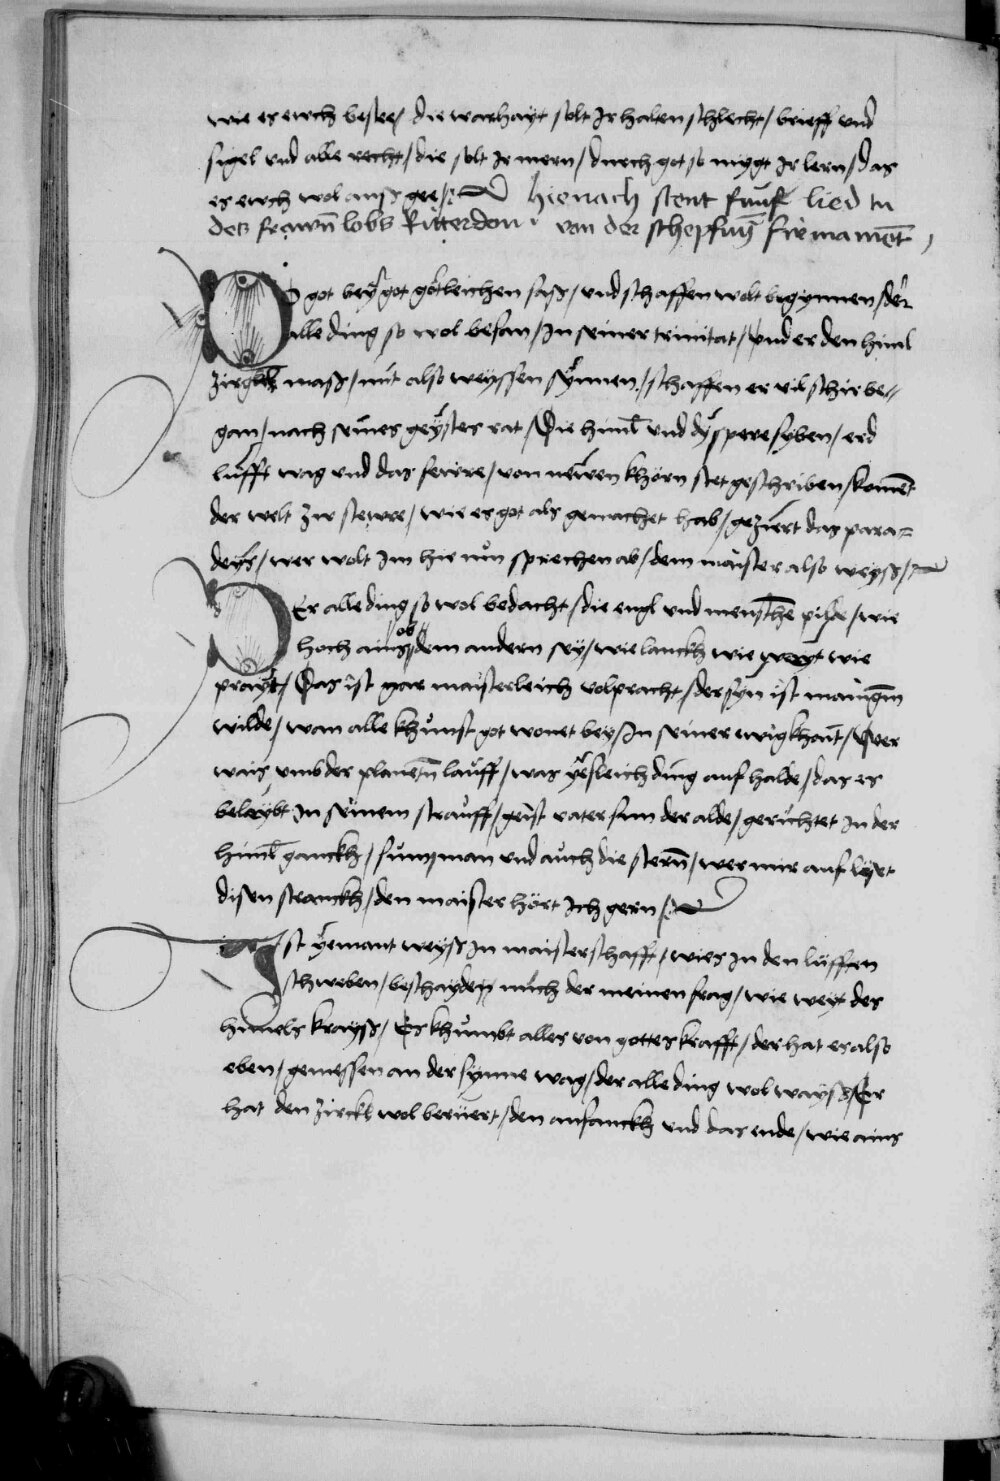 wie es ewch bestee / die warhayt solt Ir halten schlecht / brieff vnd
sigel vnd alle recht / die solt Ir mern / durch got so mygt Ir lern / das
es ewch wol auss gee / Hienach stent funf lied in
des frawn̄ lobs Ritterdon von der schepfung firmament
Do got bey got götleichen sass / vnd schaffen wolt begynnen / der
alle ding so wol besan / In seiner trinitat / vnd er den himl
zirgkl mass / mit also weyssen synnen / schaffen er vil schir be-
gan / nach seines geystes rat / Die himl vnd dy spere syben / erd
lufft wag vnd das fewre / von newen khörn stet geschriben / koment
der welt zw stewre / wie es got als gemachet hab / geziert das para=
deys / wer wolt Im hie nun sprechen ab / dem maister also weyss /
Der alle ding so wol bedacht / die engl vnd menschen pilde / wie
hoch ains ob dem andern sey / wie lanckh wie weyt wie
prayt / Das ist gar maisterleich volpracht / der syn ist manigem
wilde / wan alle khunst got wonet bey / In seiner ewigkhait / Wer
wais vmb der planeten lauff / was yesleich ding auf halde / das es
beleybt In seinem strauff / geist vater sun der alde / gerichtet In der
himl ganckh / sunn man vnd auch die stern / wer mir auf löset
disen stranckh / den maister hört Ich gern /
Ist yemant weyss In maisterschafft / wies In den lufften
schweben / beschayden mich der meinen frag / wie weyt des
himels krayss / Es khumbt alles von gottes krafft / der hat es also
eben / gemessen an der synne wag / der alle ding wol wayss / Er
hat den zirckl wol beruert / den anfanckh vnd das ende / wie ains